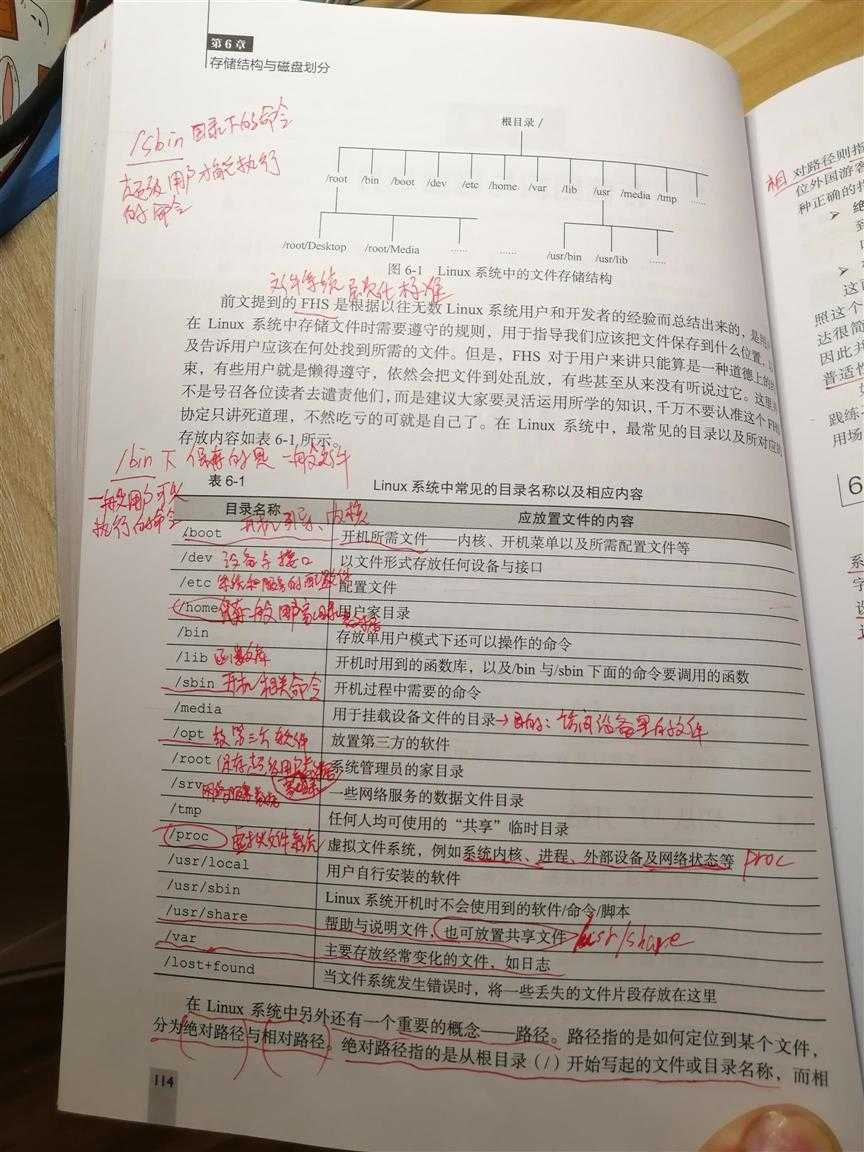 第6章
存储结构与磁盘划分
/sbin 目录下的命令
超级用户才能执行
的命令
根目录 /
/root /bin /boot /dev /etc /home /var /lib /usr /media /tmp ……
/root/Desktop /root/Media …… …… /usr/bin /usr/lib ……
图 6-1 Linux 系统中的文件存储结构
文件系统层次化标准
前文提到的 FHS 是根据以往无数 Linux 系统用户和开发者的经验而总结出来的，是
在 Linux 系统中存储文件时需要遵守的规则，用于指导我们应该把文件保存到什么位置，
及告诉用户应该在何处找到所需的文件。但是，FHS 对于用户来讲只能算是一种道德上的
束，有些用户就是懒得遵守，依然会把文件到处乱放，有些甚至从来没有听说过它。这里
不是号召各位读者去谴责他们，而是建议大家要灵活运用所学的知识，千万不要认准这个 FHS
协定只讲死道理，不然吃亏的可就是自己了。在 Linux 系统中，最常见的目录以及所对应的
存放内容如表 6-1 所示。
/bin 下 保存的是 一般文件
一般用户可以
执行的命令
表 6-1 Linux 系统中常见的目录名称以及相应内容
目录名称 应放置文件的内容
/boot 开机引导、内核 开机所需文件——内核、开机菜单以及所需配置文件等
/dev 设备与接口 以文件形式存放任何设备与接口
/etc 系统和服务的配置文件 配置文件
/home 保存一般用户家目录 用户家目录
/bin 存放单用户模式下还可以操作的命令
/lib 函数库 开机时用到的函数库，以及/bin 与/sbin 下面的命令要调用的函数
/sbin 开机相关命令 开机过程中需要的命令
/media 用于挂载设备文件的目录 →目的：访问设备里的文件
/opt 放第三方软件 放置第三方的软件
/root 保存超级用户 家目录 系统管理员的家目录
/srv 网络服务数据 一些网络服务的数据文件目录
/tmp 任何人均可使用的“共享”临时目录
/proc 虚拟文件系统 虚拟文件系统，例如系统内核、进程、外部设备及网络状态等 proc
/usr/local 用户自行安装的软件
/usr/sbin Linux 系统开机时不会使用到的软件/命令/脚本
/usr/share 帮助与说明文件，也可放置共享文件 /usr/share
/var 主要存放经常变化的文件，如日志
/lost+found 当文件系统发生错误时，将一些丢失的文件片段存放在这里
在 Linux 系统中另外还有一个重要的概念——路径。路径指的是如何定位到某个文件，
分为绝对路径与相对路径。绝对路径指的是从根目录（/）开始写起的文件或目录名称，而相
114
相 对路径则指
位外国游客
种正确的
➢ 绝
到
➢
这
照这个
达很简
因此
普适性
践练
用场
6
系
字